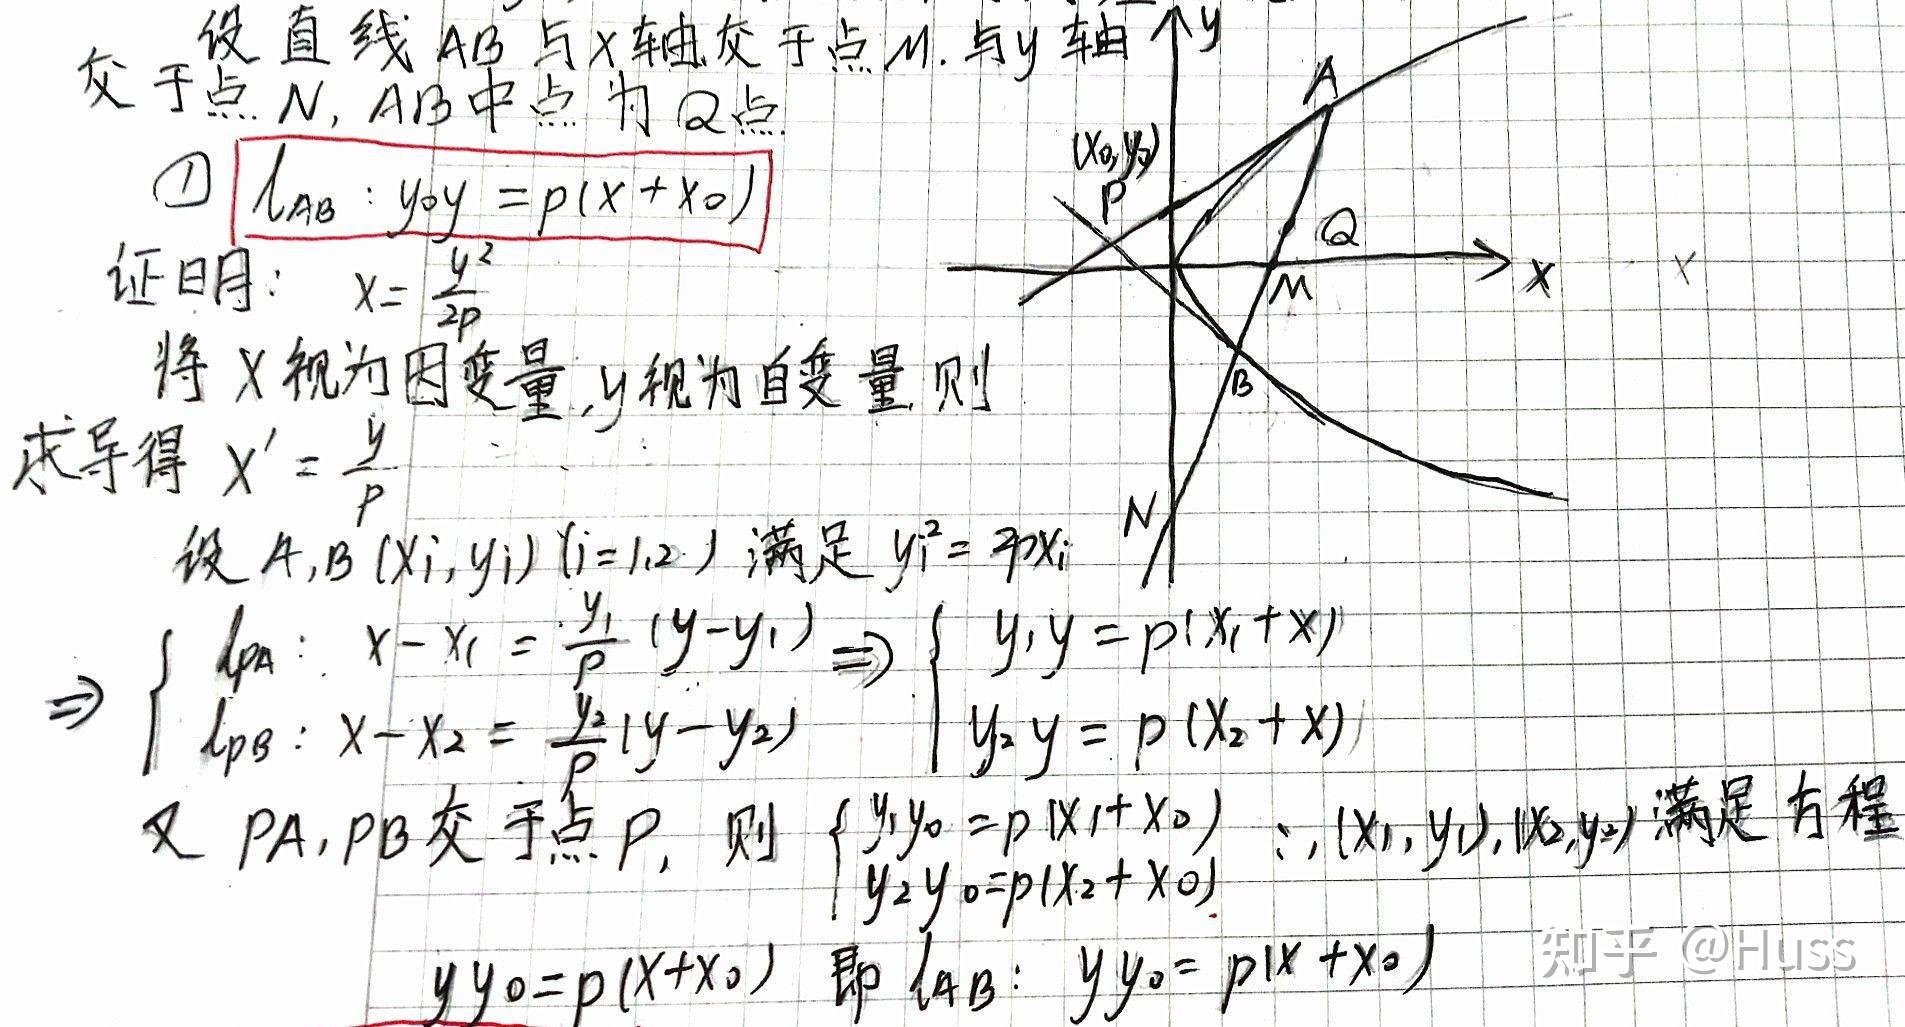 设直线AB与x轴交于点M.与y轴
交于点N,AB中点为Q点
① l_{AB}: y₀y=p(x+x₀)
证明: x=\frac{y²}{2p}
将x视为因变量,y视为自变量,则
求导得 x'=\frac{y}{p}
设A,B(xᵢ,yᵢ)(i=1,2)满足 yᵢ²=2pxᵢ
⇒ { l_{PA}: x-x₁=\frac{y₁}{p}(y-y₁) ⇒ { y₁y=p(x₁+x)
l_{PB}: x-x₂=\frac{y₂}{p}(y-y₂) y₂y=p(x₂+x)
又PA,PB交于点P,则 { y₁y₀=p(x₁+x₀) ∴(x₁,y₁),(x₂,y₂)满足方程
y₂y₀=p(x₂+x₀)
yy₀=p(x+x₀) 即 l_{AB}: yy₀=p(x+x₀)
y
A
(x₀,y₀)
P
Q
M
x
x
B
N
知乎 @Huss